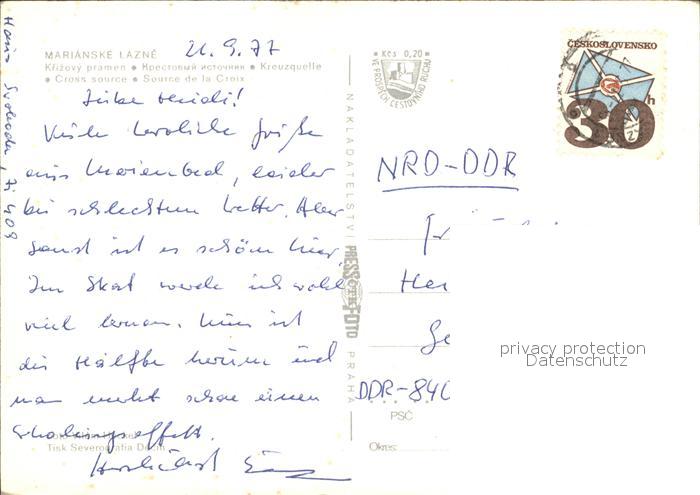 MARIÁNSKÉ LÁZNĚ 21.9.77
Křížový pramen • Крестовый источник • Kreuzquelle
• Cross source • Source de la Croix
Liebe Heidi!
Viele herzliche Grüße
aus Marienbad, leider
bei schlechtem Wetter. Aber
sonst ist es schön hier.
Im Skat werde ich wohl
viel lernen. Nun ist
die Hälfte herum und
man merkt schon einen
Erholungseffekt.
Tisk Severografia Děčín
Herzlichst
Hans Svoboda
NAKLADATELSTVÍ PRESSFOTO PRAHA
Kčs 0,20
VE PROSPĚCH CESTOVNÍHO RUCHU
ČESKOSLOVENSKO
30h
NRD-DDR
Fr
He
Ge
DDR-840
PSČ
Okres:
privacy protection
Datenschutz